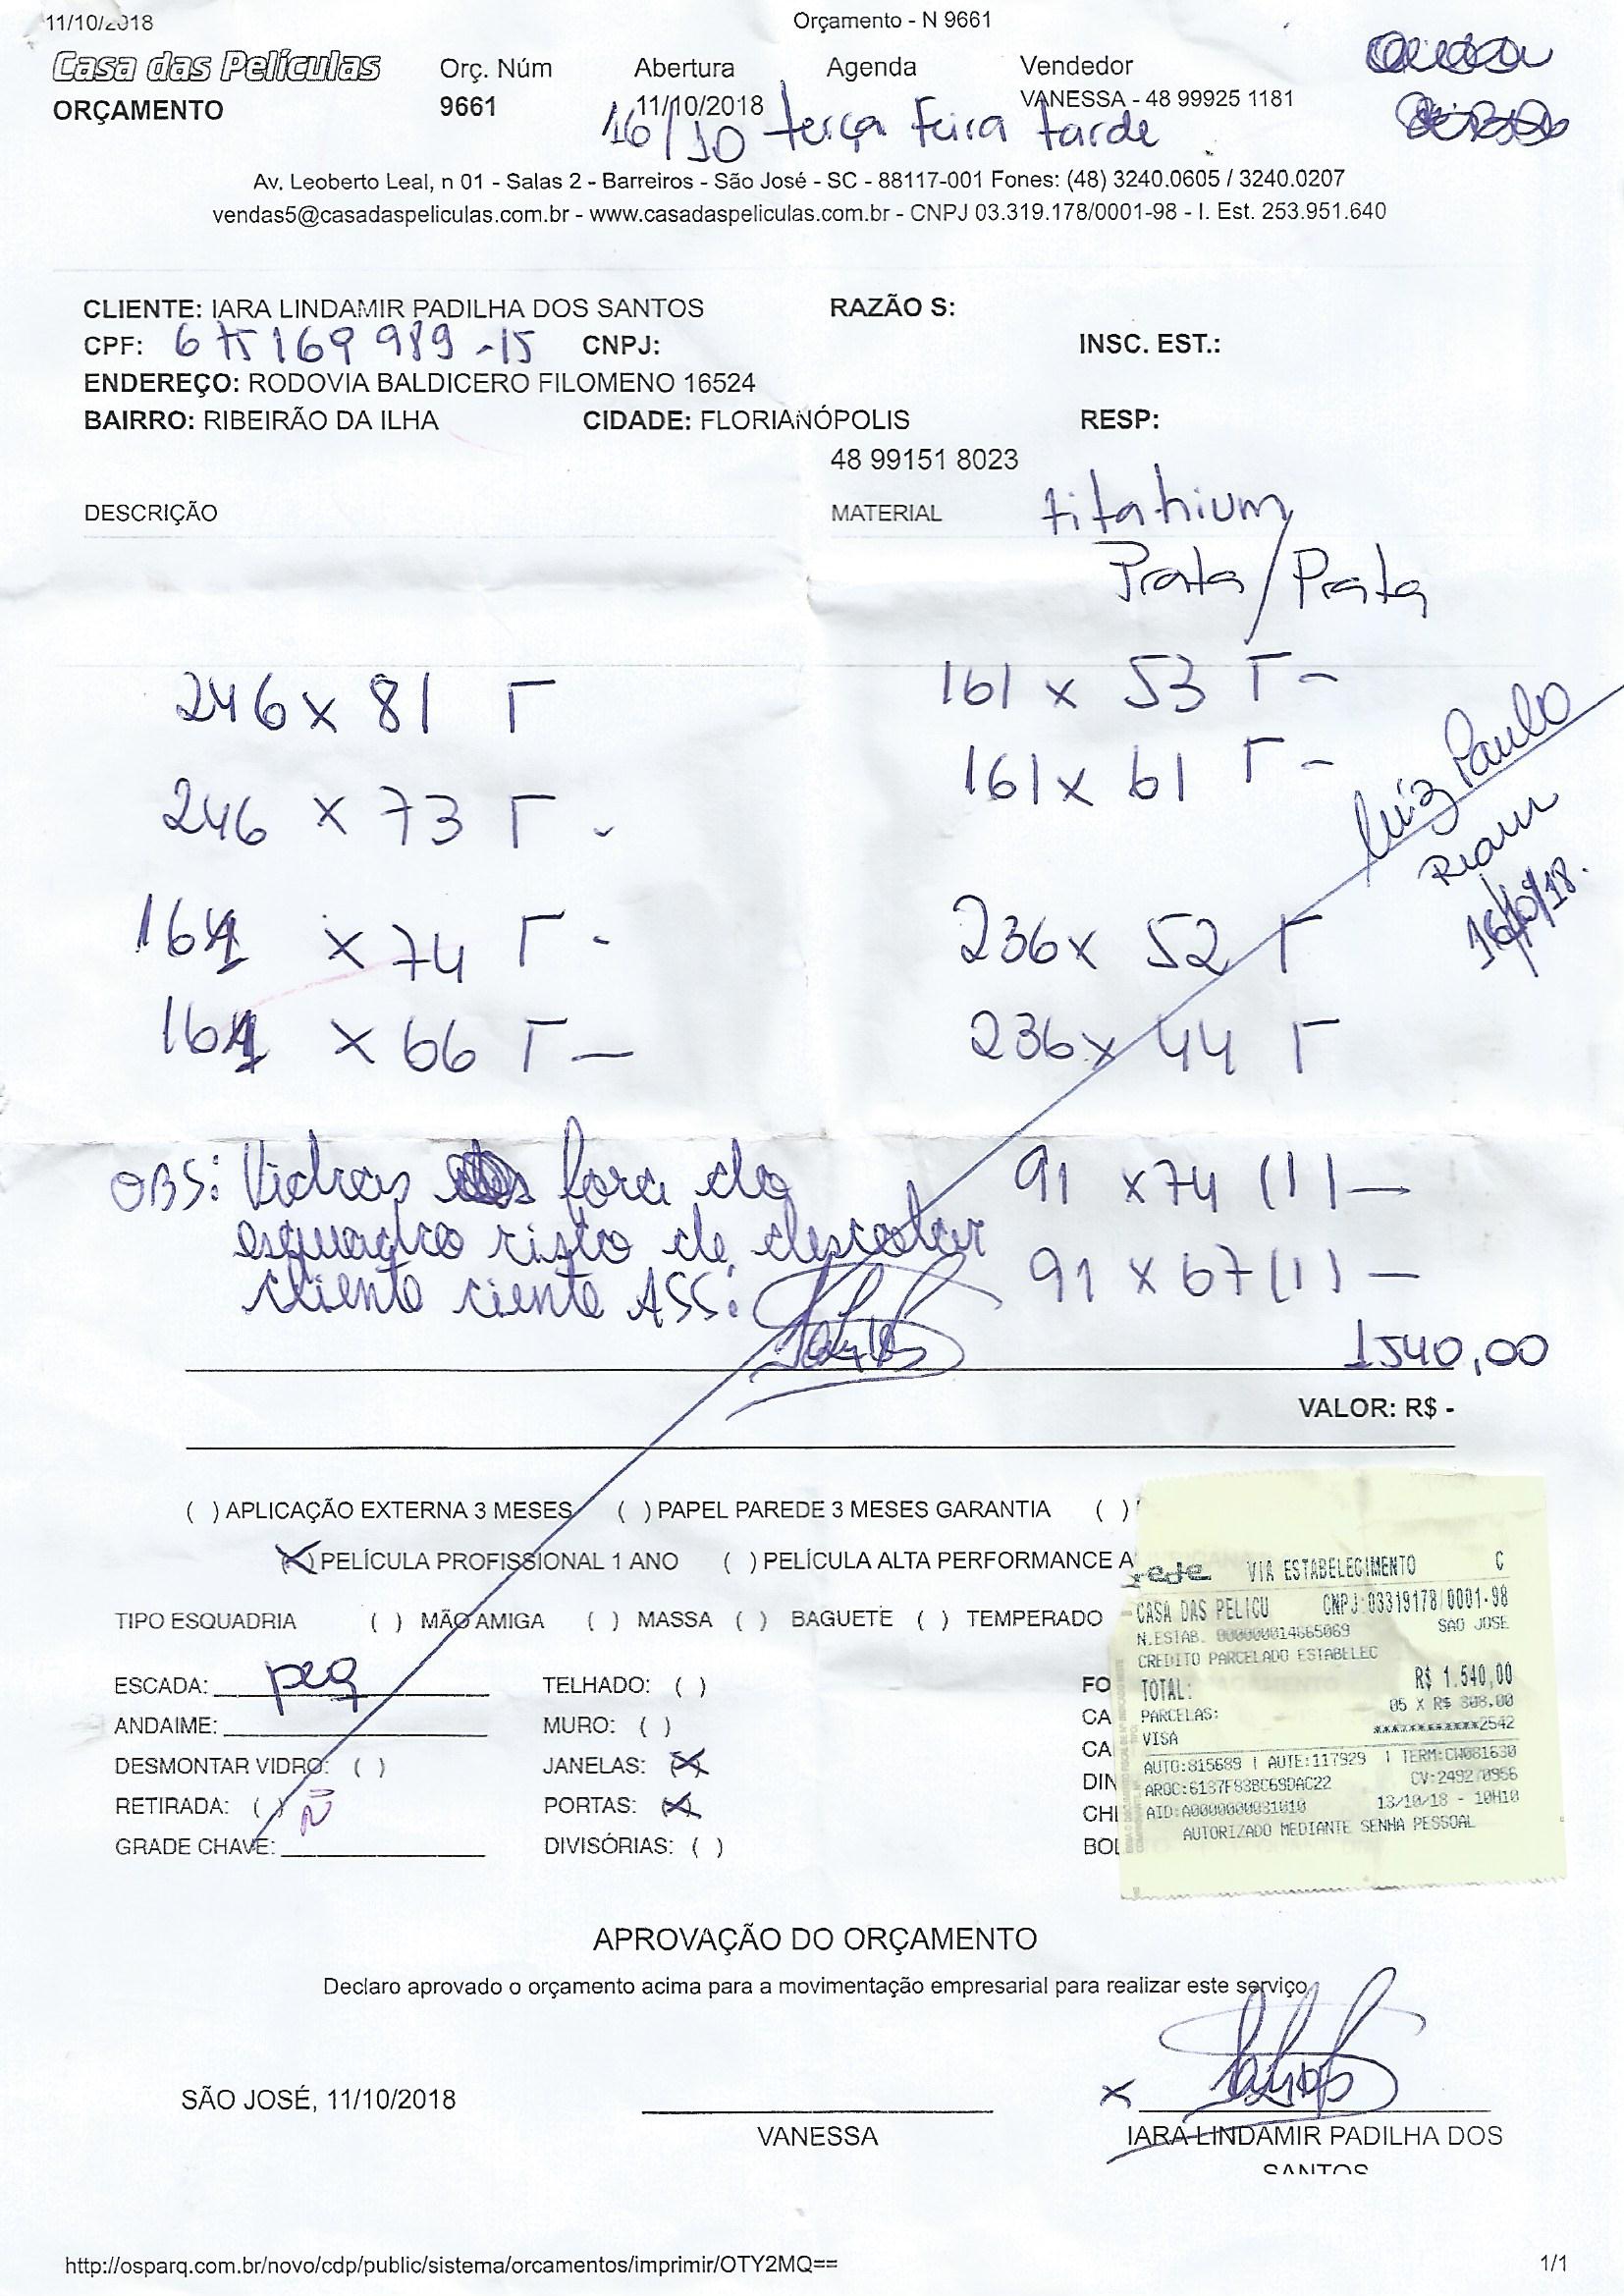 11/10/2018 Orçamento - N 9661
Casa das Películas Orç. Núm Abertura Agenda Vendedor
ORÇAMENTO 9661 11/10/2018 VANESSA - 48 99925 1181
16/10 terça feira tarde
Av. Leoberto Leal, n 01 - Salas 2 - Barreiros - São José - SC - 88117-001 Fones: (48) 3240.0605 / 3240.0207
vendas5@casadaspeliculas.com.br - www.casadaspeliculas.com.br - CNPJ 03.319.178/0001-98 - I. Est. 253.951.640
CLIENTE: IARA LINDAMIR PADILHA DOS SANTOS RAZÃO S:
CPF: 675169989-15 CNPJ: INSC. EST.:
ENDEREÇO: RODOVIA BALDICERO FILOMENO 16524
BAIRRO: RIBEIRÃO DA ILHA CIDADE: FLORIANÓPOLIS RESP:
48 99151 8023
DESCRIÇÃO MATERIAL titanium
Prata/Prata
246 x 81 Γ 161 x 53 Γ -
246 x 73 Γ - 161 x 61 Γ -
Luiz Paulo
Rian
16/10/18.
161 x 74 Γ - 236 x 52 Γ
161 x 66 Γ - 236 x 44 Γ
OBS: Vidros fora do 91 x 74 (1) -
esquadro risco de descolar
cliente ciente ASS: 91 x 67 (1) -
1540,00
VALOR: R$ -
( ) APLICAÇÃO EXTERNA 3 MESES ( ) PAPEL PAREDE 3 MESES GARANTIA ( )
(X) PELÍCULA PROFISSIONAL 1 ANO ( ) PELÍCULA ALTA PERFORMANCE A
TIPO ESQUADRIA ( ) MÃO AMIGA ( ) MASSA ( ) BAGUETE ( ) TEMPERADO
ESCADA: peq TELHADO: ( ) FO
ANDAIME: MURO: ( ) CA
DESMONTAR VIDRO: ( ) JANELAS: (X) CA
RETIRADA: ( ) Ñ PORTAS: (X) DIN
CHE
GRADE CHAVE: DIVISÓRIAS: ( ) BOL
rede VIA ESTABELECIMENTO C
CASA DAS PELICU CNPJ:03319178/0001-98
N.ESTAB. 000000014665069 SAO JOSE
CREDITO PARCELADO ESTABELEC
TOTAL: R$ 1.540,00
PARCELAS: 05 X R$ 308.00
VISA ************2542
AUTO:815689 | AUTE:117929 | TERM:CW081630
ARQC:6137F93BC69DAC22 CV:2492/0956
AID:A0000000031010 13/10/18 - 10H10
AUTORIZADO MEDIANTE SENHA PESSOAL
APROVAÇÃO DO ORÇAMENTO
Declaro aprovado o orçamento acima para a movimentação empresarial para realizar este serviço
SÃO JOSÉ, 11/10/2018 x
VANESSA IARA LINDAMIR PADILHA DOS
SANTOS
http://osparq.com.br/novo/cdp/public/sistema/orcamentos/imprimir/OTY2MQ== 1/1